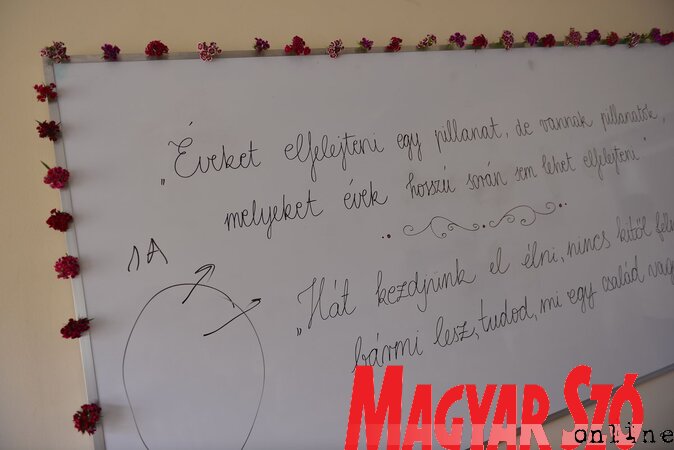 „Éveket elfelejteni egy pillanat, de vannak pillanatok,
melyeket évek hosszú során sem lehet elfelejteni."
1A
„Hát kezdjünk el élni, nincs kitől
bármi lesz, tudod, mi egy család
MAGYAR SZÓ
online